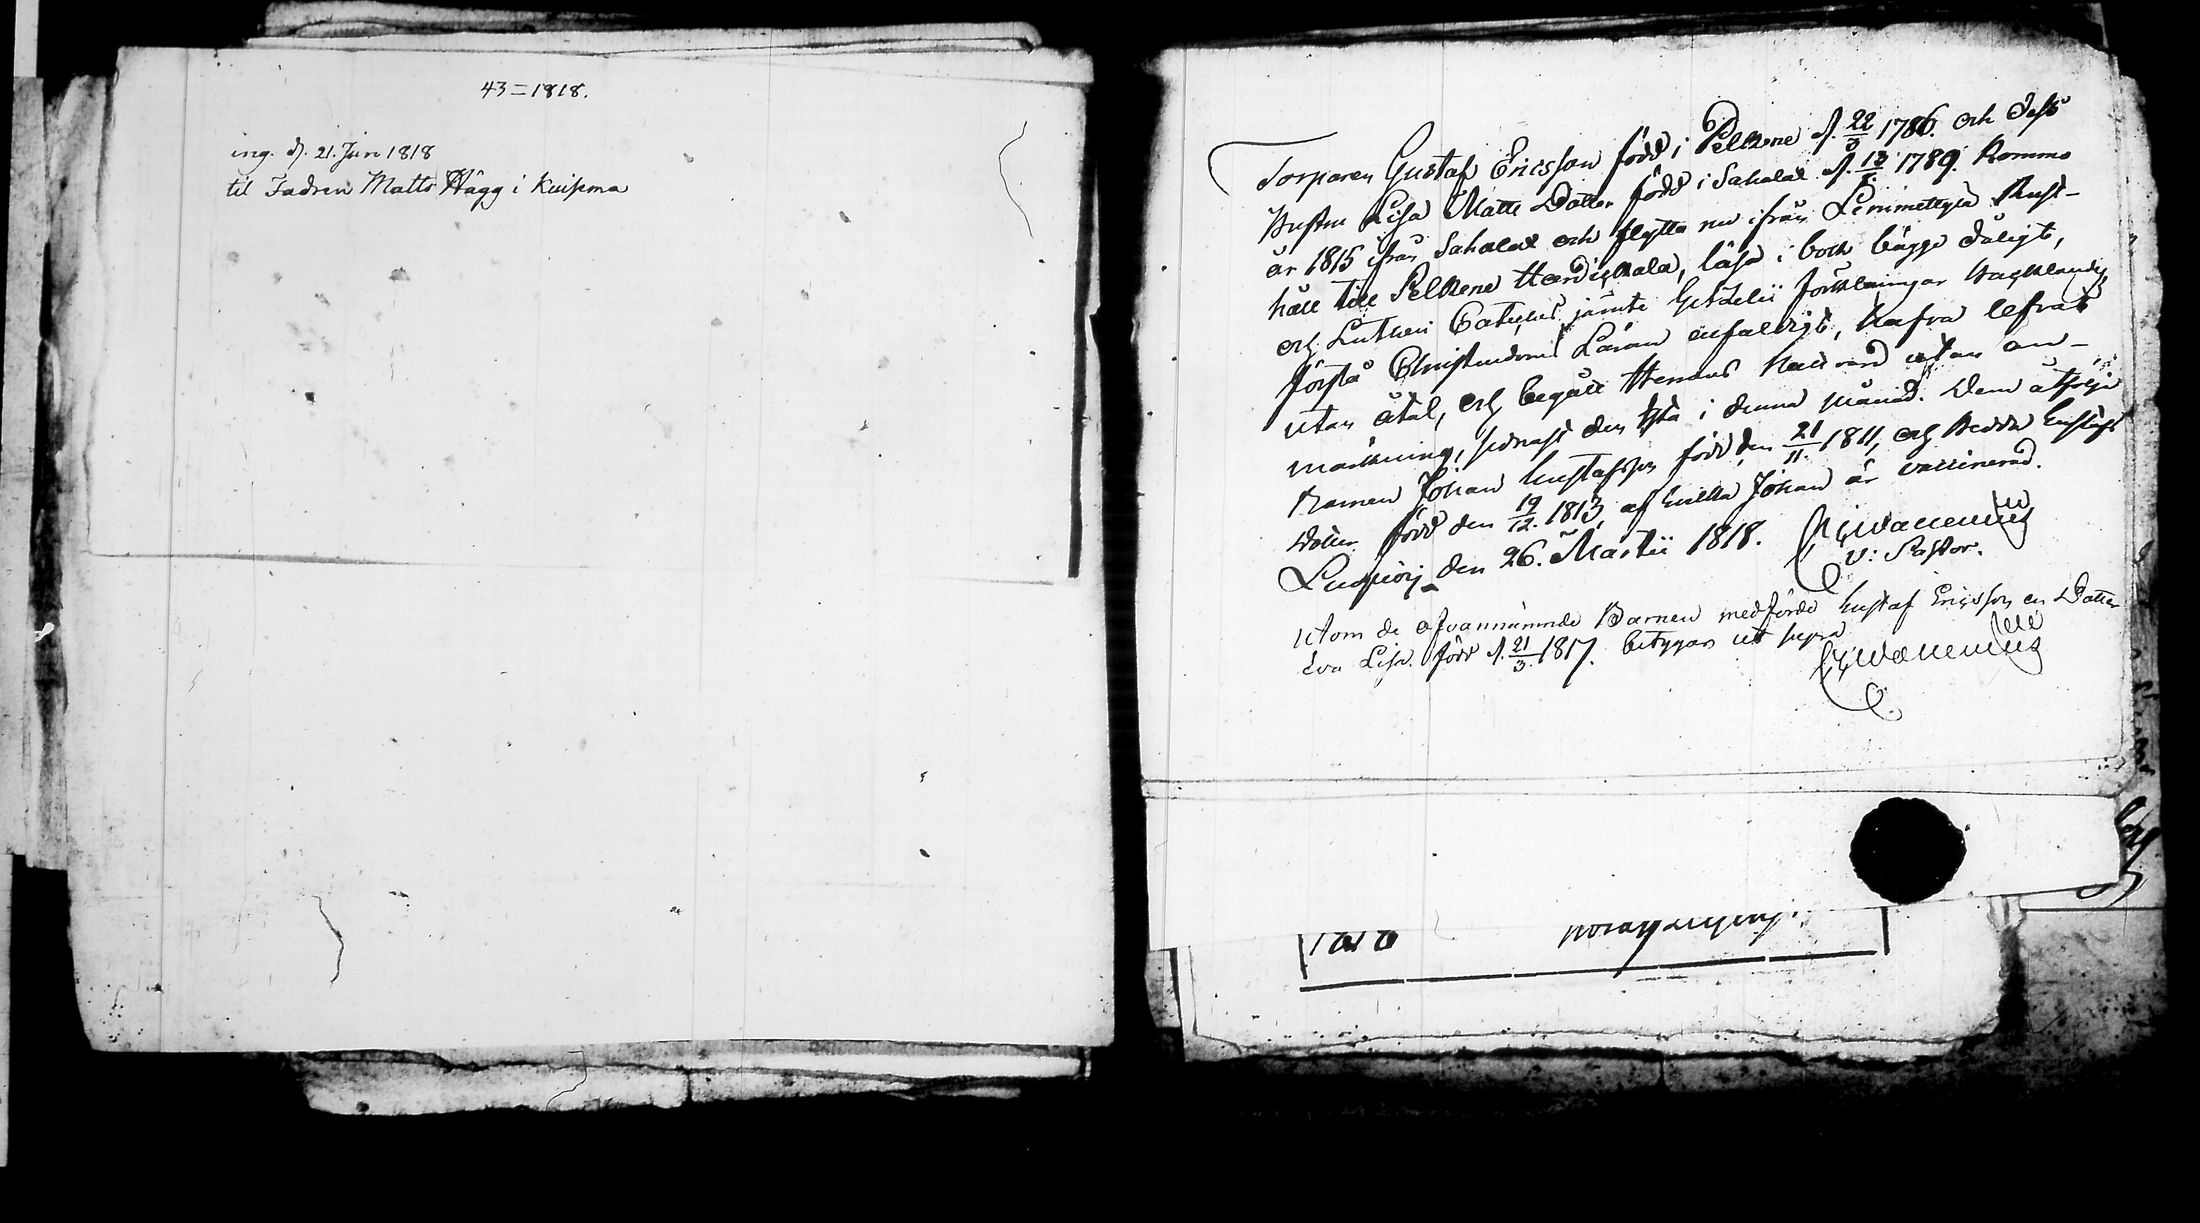 43=1818.
ing. d. 21. Jun 1818
til Fadren Matts Hägg i Kuisema
Torparen Gustaf Ericsson född i Pelkene d. 22/3 1786. och dess
Hustru Lisa Matts Dotter född i Sahalax d. 13/ 1789. Komme
år 1815 ifrån Sahalax och flytta nu ifrån Lemmettyla Rust-
håll till Pelkene läsa i bok bägge dåligt,
och Lutheri Cateches jämte förklaringar
förstå Christendoms Läran enfaldigt, hafva lefvat
utan åtal, och begått Herrans Nattvard utan an-
märkning, sednast den i denna månad. Dem åtfölja
Barnen Johan Gustafsson född den 21/11. 1811, och Hedda Gustafs
Dotter född den 19/12. 1813, af hvilka Johan är vaccinerad.
den 26. Martii 1818.
V: Pastor.
Utom de ofvannämnde Barnen medförde Gustaf Ericsson en Dotter
Eva Lisa född d. 21/3. 1817. betygar ut supra
1818